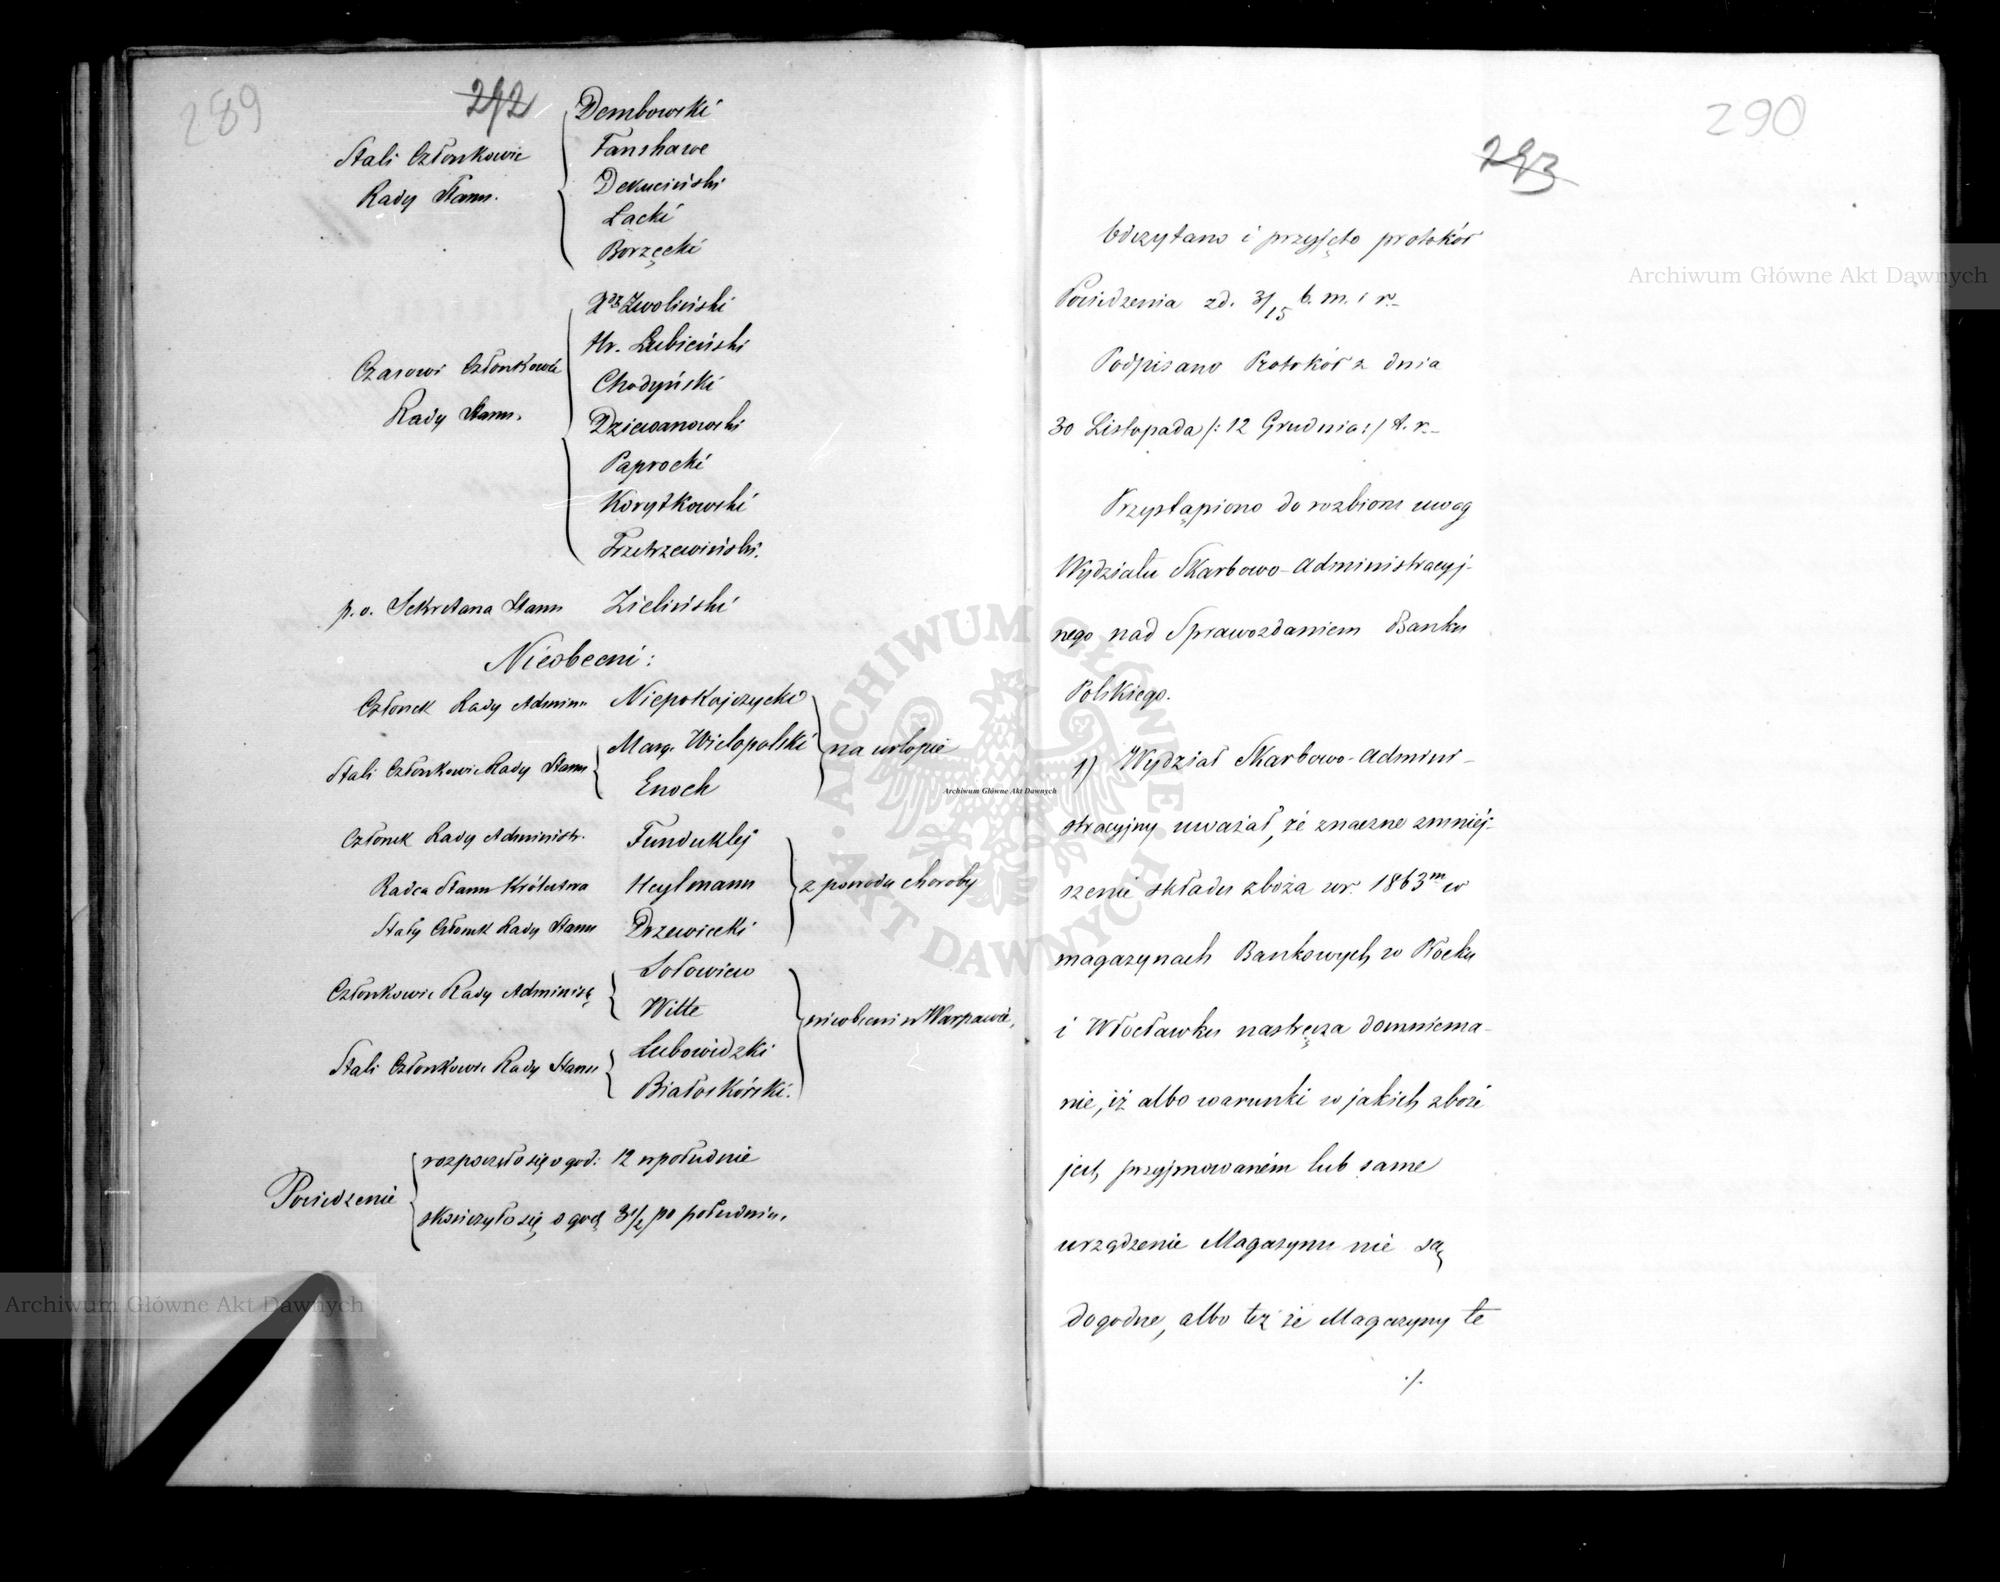 289
292
Stali Członkowie
Rady Stanu.
Dembowski
Fanshawe
Dekuciński
Łącki
Borzęcki
Czasowi Członkowie
Rady Stanu.
Xdz Zwoliński
Hr. Łubieński
Chodyński
Dziewanowski
Paprocki
Korytkowski
Trzetrzewiński.
p. o. Sekretarza Stanu Zieliński
Nieobecni:
Członek Rady Admin. Niepokojczycki
Stali Członkowie Rady Stanu
Marg. Wielopolski
Enoch
na urlopie
Członek Rady Administr. Funduklej
Radca Stanu Królestwa Heylmann
Stały Członek Rady Stanu Drzewiecki
z powodu choroby
Członkowie Rady Adminis.
Sołowiew
Witte
Stali Członkowie Rady Stanu
Łubowidzki
Białoskórski.
nieobecni w Warszawie,
Posiedzenie
rozpoczęło się o god: 12 w południe
skończyło się o god 3 1/2 po południu.
290
293
Odczytano i przyjęto protokół
Posiedzenia z d. 3/15 b. m. i r.
Podpisano Protokół z dnia
30 Listopada /: 12 Grudnia :/ t. r.
Przystąpiono do rozbioru uwag
Wydziału Skarbowo-Administracyj-
nego nad Sprawozdaniem Banku
Polskiego.
1) Wydział Skarbowo-Admini-
stracyjny uważał, że znaczne zmniej-
szenie składu zboża w r. 1863m w
magazynach Bankowych w Płocku
i Włocławku nastręcza domniema-
nie, iż albo warunki w jakich zboże
jest przyjmowaném lub same
urządzenie Magazynu nie są
dogodne, albo też że Magazyny te
./.
Archiwum Główne Akt Dawnych
Archiwum Główne Akt Dawnych
Archiwum Główne Akt Dawnych
ARCHIWUM GŁÓWNE AKT DAWNYCH